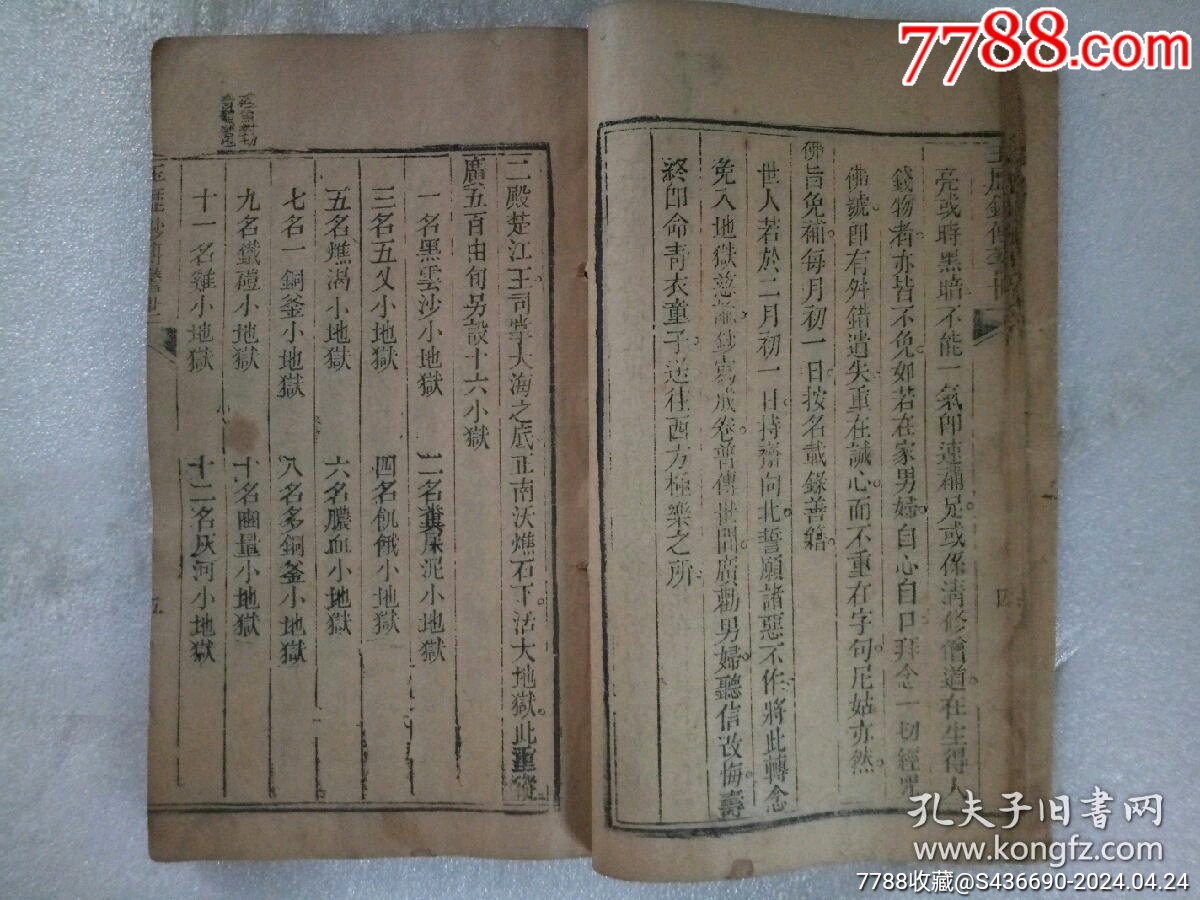 7788.com
亮或時黑暗不能一氣即速補足或係清修僧道在生得人
錢物者亦皆不免如若在家男婦自心自口拜念一切經咒
佛號即有舛錯遺失重在誠心而不重在字句尼姑亦然
佛旨免補每月初一日按名載錄善籍
世人若於二月初一日持齋向北誓願諸惡不作將此轉念
免入地獄慈 鈔寫成卷普傳世間廣勸男婦聽信改悔壽
終即命青衣童子送往西方極樂之所
四
二殿楚江王司掌大海之底正南沃燋石下活大地獄此重縱
廣五百由旬另設十六小獄
一名黑雲沙小地獄 二名糞屎泥小地獄
三名五叉小地獄 四名飢餓小地獄
五名燋渴小地獄 六名膿血小地獄
七名一銅釜小地獄 八名多銅釜小地獄
九名鐵磑小地獄 十名幽量小地獄
十一名雞小地獄 十二名灰河小地獄
五
孔夫子旧書网
www.kongfz.com
7788收藏@S436690-2024.04.24